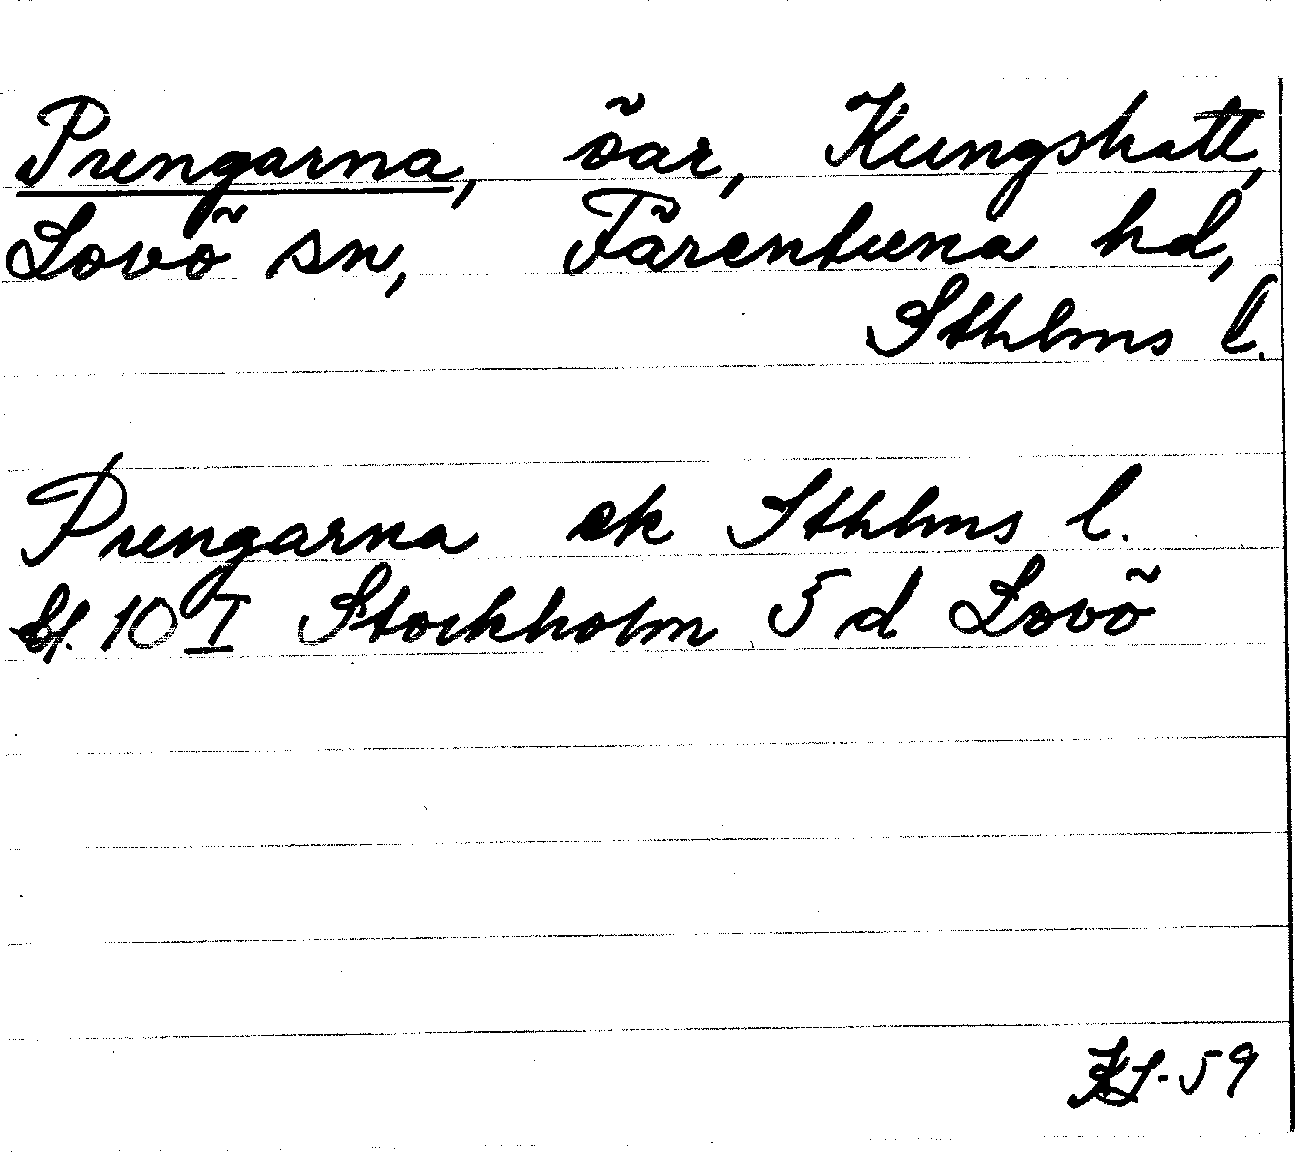 Prungarna, öar, Kungshatt,
Lovö sn, Färentuna hd,
Sthlms l.
Prungarna ek Sthlms l.
bl. 10 I Stockholm 5 d Lovö
59